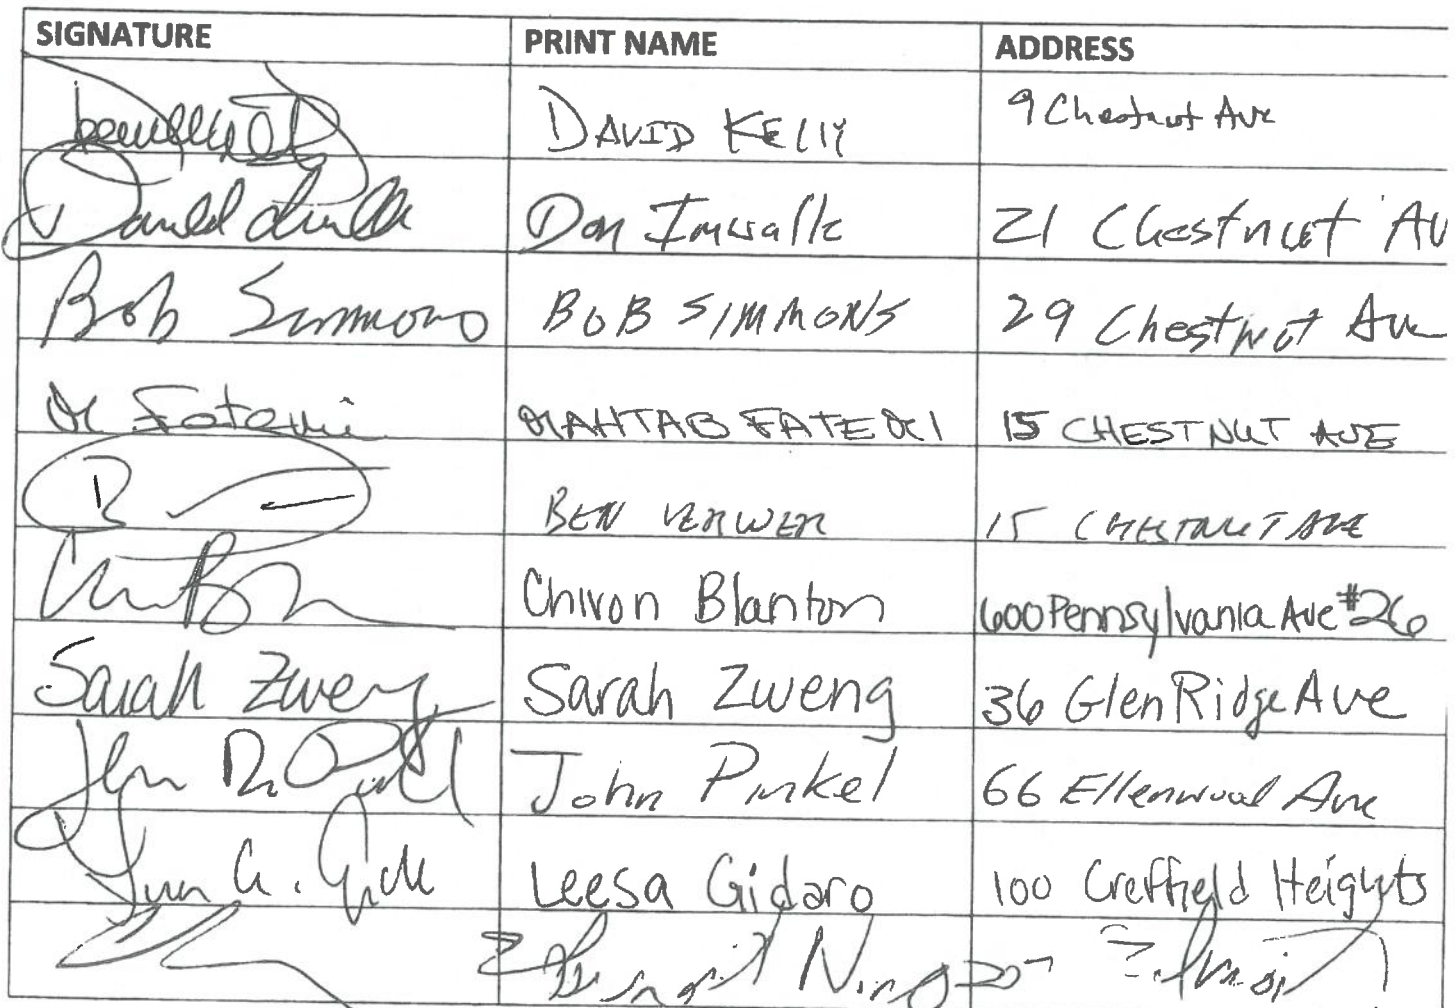 SIGNATURE PRINT NAME ADDRESS
DAVID KELLY 9 Chestnut Ave
Don Imwalle 21 Chestnut Av
Bob Simmons BOB SIMMONS 29 Chestnut Ave
M Fatemi MAHTAB FATEMI 15 CHESTNUT AVE
B BEN VERWER 15 CHESTNUT AVE
Chiron Blanton 600 Pennsylvania Ave #26
Sarah Zweng Sarah Zweng 36 Glen Ridge Ave
John Pinkel 66 Ellenwood Ave
Leesa Gidaro 100 Creffield Heights